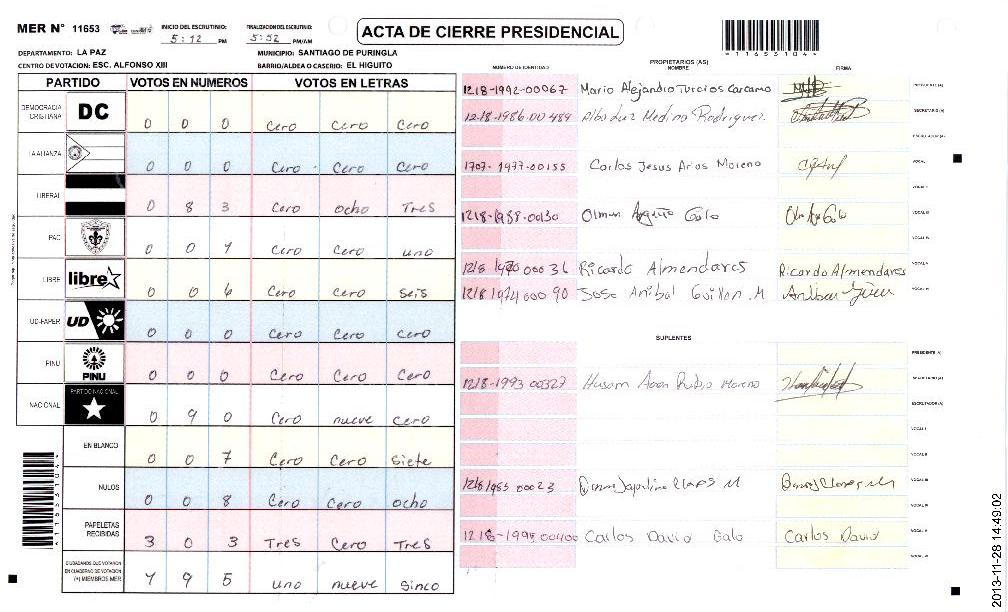 MER N° 11653 INICIO DEL ESCRUTINIO: 5:12 PM FINALIZACION DEL ESCRUTINIO: 5:52 PM/AM ACTA DE CIERRE PRESIDENCIAL
11653104
DEPARTAMENTO: LA PAZ MUNICIPIO: SANTIAGO DE PURINGLA
CENTRO DE VOTACION: ESC. ALFONSO XIII BARRIO/ALDEA O CASERIO: EL HIGUITO
PARTIDO VOTOS EN NUMEROS VOTOS EN LETRAS
DEMOCRACIA CRISTIANA DC 0 0 0 Cero Cero Cero
LA ALIANZA 0 0 0 Cero Cero Cero
LIBERAL 0 8 3 Cero ocho Tres
PAC 0 0 1 Cero Cero uno
LIBRE libre 0 0 6 Cero Cero seis
UD-FAPER UD 0 0 0 Cero Cero Cero
PINU PINU 0 0 0 Cero Cero Cero
NACIONAL PARTIDO NACIONAL 0 9 0 Cero nueve cero
EN BLANCO 0 0 7 Cero Cero siete
NULOS 0 0 8 Cero Cero ocho
PAPELETAS RECIBIDAS 3 0 3 Tres Cero Tres
CIUDADANOS QUE VOTARON EN CUADERNO DE VOTACION (+) MIEMBROS MER 1 9 5 uno nueve sinco
PROPIETARIOS (AS)
NUMERO DE IDENTIDAD NOMBRE FIRMA
1218-1992-00067 Mario Alejandro Turcios Carcamo PRESIDENTE (A)
1218-1986-00489 Medina Rodriguez. SECRETARIO (A)
ESCRUTADOR (A)
1707-1977-00155 Carlos Jesus Arias Moreno VOCAL
VOCAL II
1218-1988-00130 Olman Galo VOCAL III
VOCAL IV
1218 1970 00036 Ricardo Almendares Ricardo Almendares VOCAL V
1218 1974 000 90 Jose Anibal M VOCAL VI
SUPLENTES
PRESIDENTE (A)
1218-1993 00327 Rubio Moreno SECRETARIO (A)
ESCRUTADOR (A)
VOCAL I
VOCAL II
1218 1985 00023 M VOCAL III
VOCAL IV
1218-1995 00400 Carlos David Galo Carlos David VOCAL V
VOCAL VI
11653104
2013-11-28 14:49:02